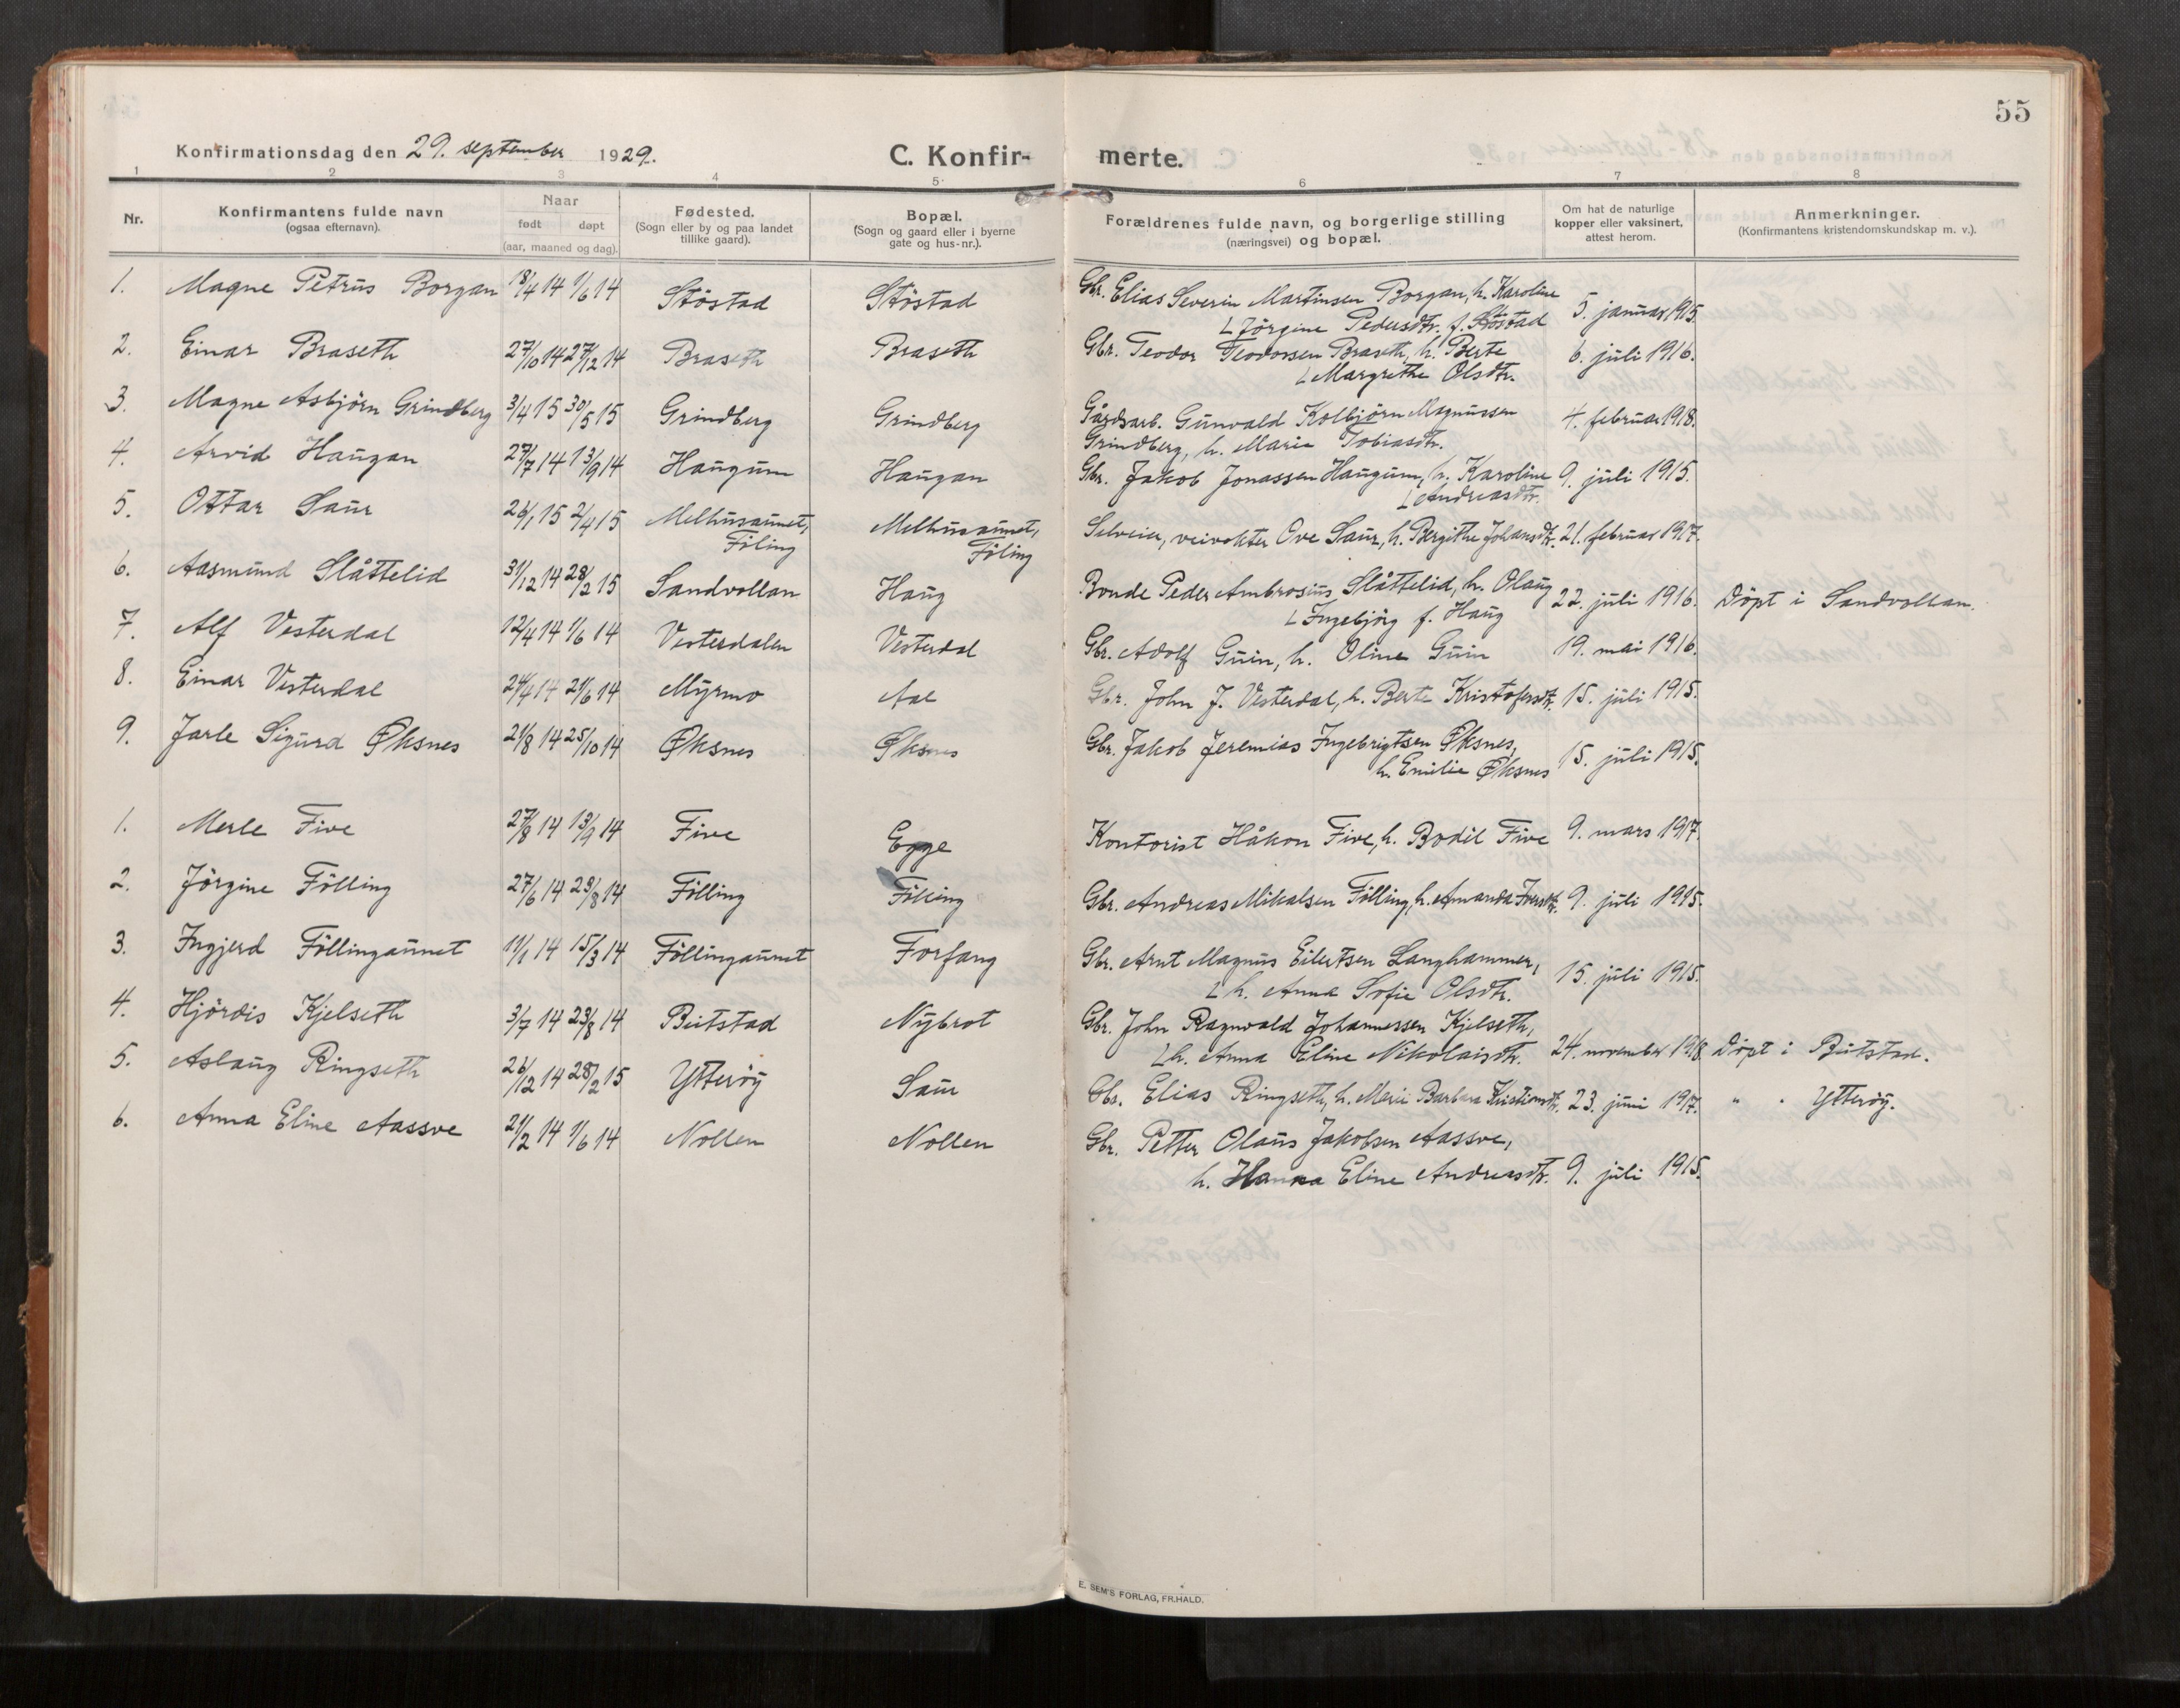 55
Konfirmationsdag den 29. september 1929. C. Konfir- merte.
1 2 3 4 5 6 7 8
Nr. Konfirmantens fulde navn (ogsaa efternavn). Naar født døpt (aar, maaned og dag). Fødested. (Sogn eller by og paa landet tillike gaard). Bopæl. (Sogn og gaard eller i byerne gate og hus-nr.). Forældrenes fulde navn, og borgerlige stilling (næringsvei) og bopæl. Om hat de naturlige kopper eller vaksinert, attest herom. Anmerkninger. (Konfirmantens kristendomskundskap m. v.).
1. Magne Petrus Borgan 18/4 14 1/6 14 Stöstad Stöstad Gbr. Elias Severin Martinsen Borgan, h. Karoline 5. januar 1915.
Jörgine Pedersdtr. f. Stöstad
2. Einar Braseth 27/10 14 27/12 14 Braseth Braseth Gbr. Teodor Teodorsen Braseth, h. Berte 6. juli 1916.
Margrethe Olsdtr.
3. Magne Asbjörn Grindberg 3/4 15 30/5 15 Grindberg Grindberg Gårdsarb. Gunvald Kolbjörn Magnussen 4. februar 1918.
Grindberg, h. Marie Tobiasdtr.
4. Arvid Haugan 27/7 14 13/9 14 Haugum Haugan Gbr. Jakob Jonassen Haugum, h. Karoline 9. juli 1915.
Andreasdtr.
5. Ottar Saur 26/1 15 2/4 15 Melhusaunet, Melhusaunet, Selveier, veivokter Ove Saur, h. Bergithe Johansdtr. 21. februar 1917.
Föling Föling
6. Aasmund Slåttelid 31/12 14 28/2 15 Sandvollan Haug Bonde Peder Ambrosius Slåttelid, h. Olaug 22. juli 1916. Döpt i Sandvollan.
Ingebjörg f. Haug
7. Alf Vesterdal 12/4 14 1/6 14 Vesterdalen Vesterdal Gbr. Adolf Guin, h. Oline Guin 19. mai 1916.
8. Einar Vesterdal 24/4 14 21/6 14 Myrmo Aal Gbr. John J. Vesterdal, h. Berte Kristofersdtr. 15. juli 1915.
9. Jarle Sigurd Øksnes 21/8 14 25/10 14 Øksnes Øksnes Gbr. Jakob Jeremias Ingebrigtsen Øksnes, 15. juli 1915.
h. Emilie Øksnes
1. Merle Five 27/8 14 13/9 14 Five Egge Kontorist Håkon Five, h. Bodil Five 9. mars 1917.
2. Jörgine Fölling 27/6 14 23/8 14 Fölling Fölling Gbr. Andreas Mikalsen Fölling, h. Amanda Iversdtr. 9. juli 1915.
3. Ingjerd Föllingaunet 11/1 14 15/3 14 Föllingaunet Forfang Gbr. Arnt Magnus Eilertsen Langhammer, 15. juli 1915.
h. Anna Sofie Olsdtr.
4. Hjördis Kjelseth 3/7 14 23/8 14 Beitstad Nybrot Gbr. John Ragnvald Johannessen Kjelseth,
h. Anna Eline Nikolaisdtr. 24. november 1918. Döpt i Beitstad.
5. Aslaug Ringseth 26/12 14 28/2 15 Ytteröy Saur Gbr. Elias Ringseth, h. Marie Barbara Kristiansdtr. 23. juni 1917. " " Ytteröy.
6. Anna Eline Aassve 21/2 14 1/6 14 Nollen Nollen Gbr. Petter Olaus Jakobsen Aassve,
h. Hanna Eline Andreasdtr. 9. juli 1915.
E. SEM'S FORLAG, FR.HALD.